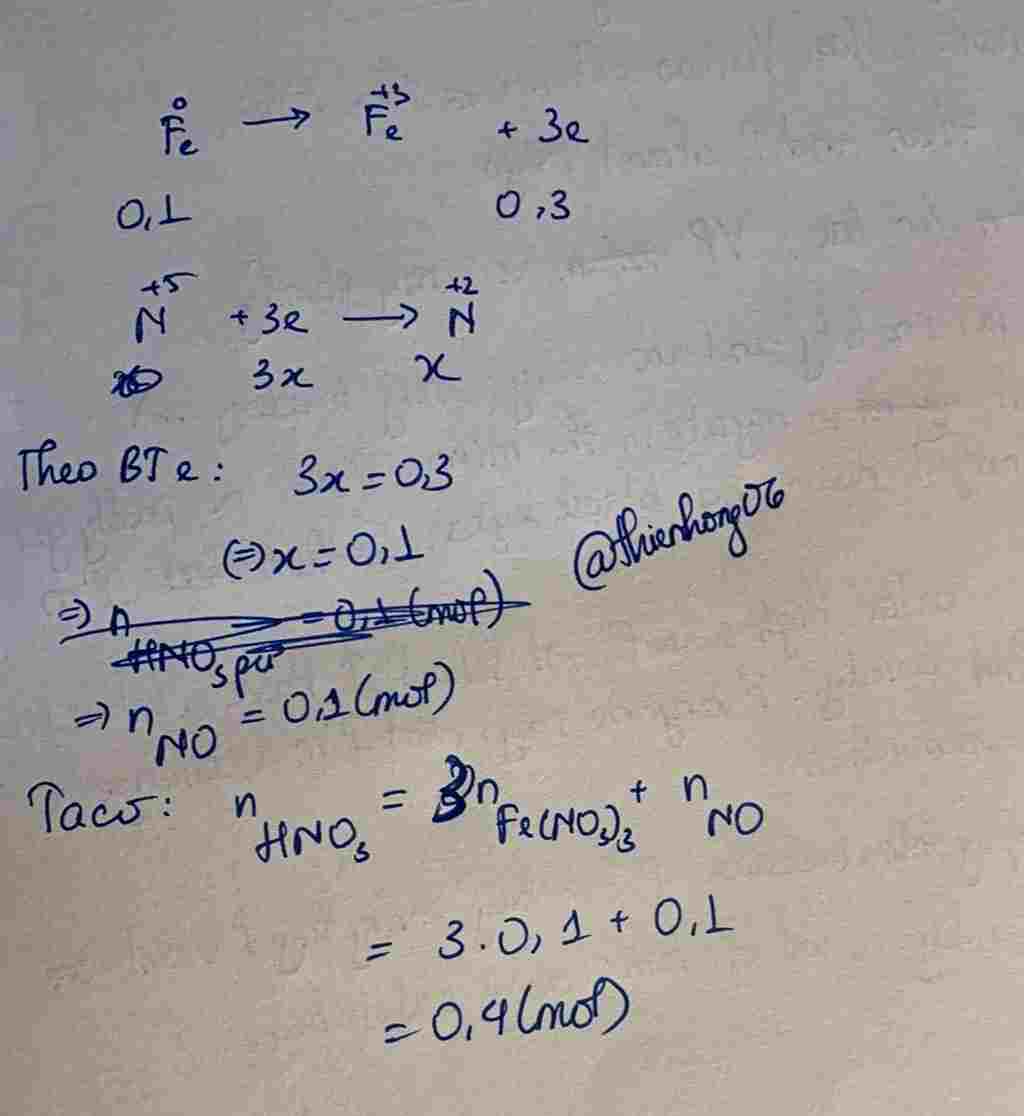 0 +3
Fe → Fe + 3e
0,1 0,3
+5 +2
N + 3e → N
3x x
Theo BT e: 3x = 0,3
(=) x = 0,1
@thienhong06
=> n = 0,1 (mol)
HNO3 pư
=> nNO = 0,1 (mol)
Ta có: nHNO3 = 3nFe(NO3)3 + nNO
= 3.0,1 + 0,1
= 0,4 (mol)